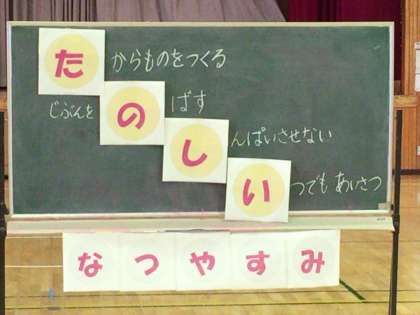 たからものをつくる
じぶんをのばす
しんぱいさせない
いつでも あいさつ
なつやすみ